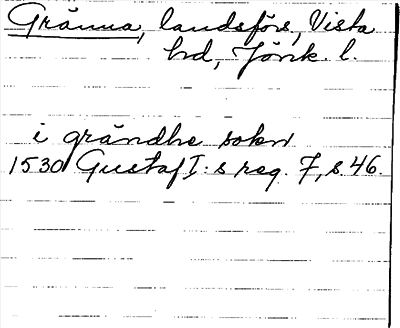 Gränna, landsförs, Vista
hrd, Jönk. l.
i grändhe sokn
1530 Gustaf I:s reg. 7, s 46.